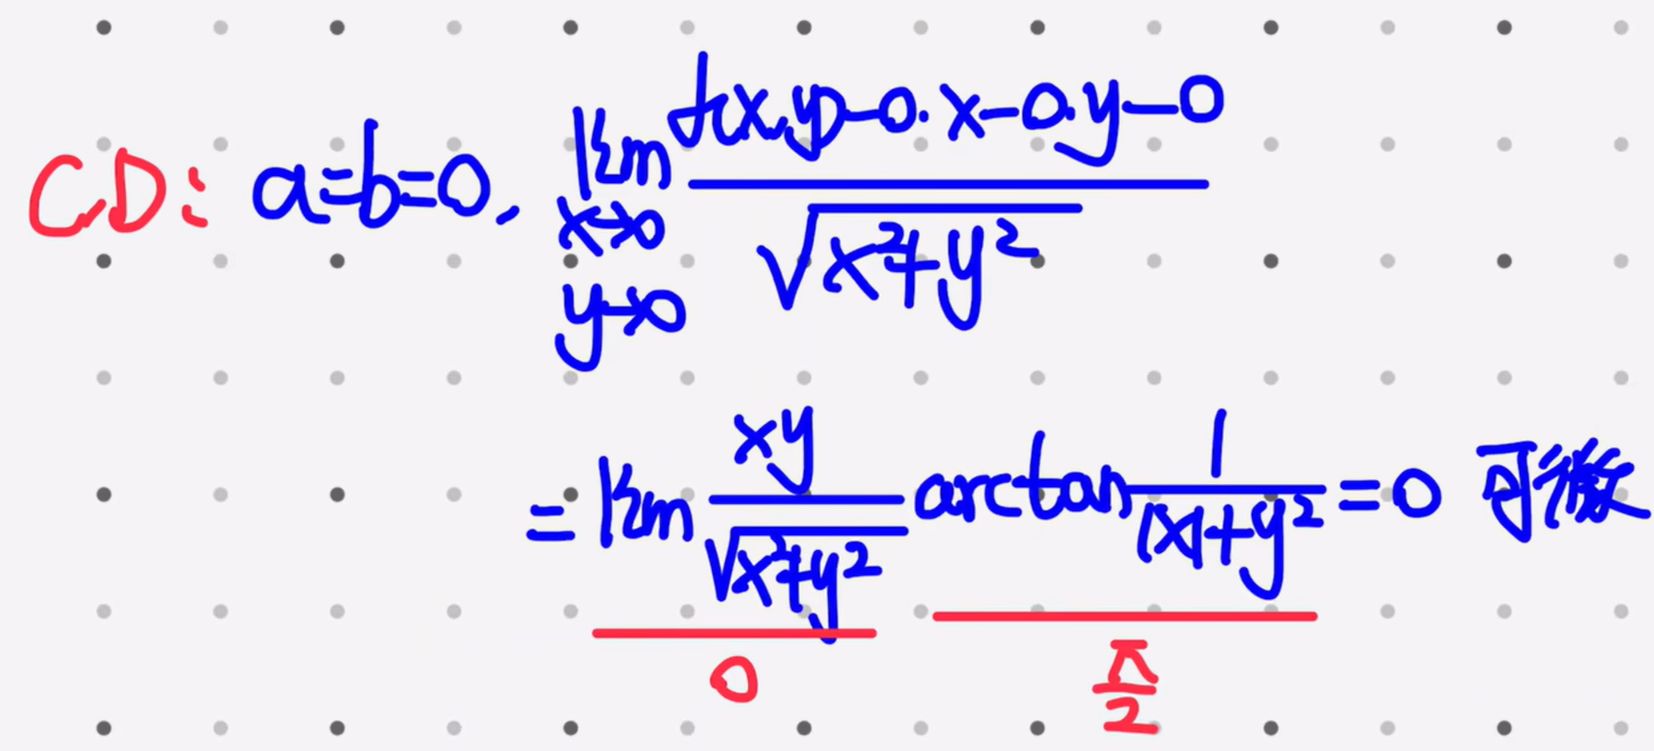 C,D: a=b=0, lim_{x→0, y→0} \frac{f(x,y)-0·x-0·y-0}{\sqrt{x²+y²}}
= lim \frac{xy}{\sqrt{x²+y²}} arctan \frac{1}{|x|+y²} = 0 可微
0 \frac{π}{2}